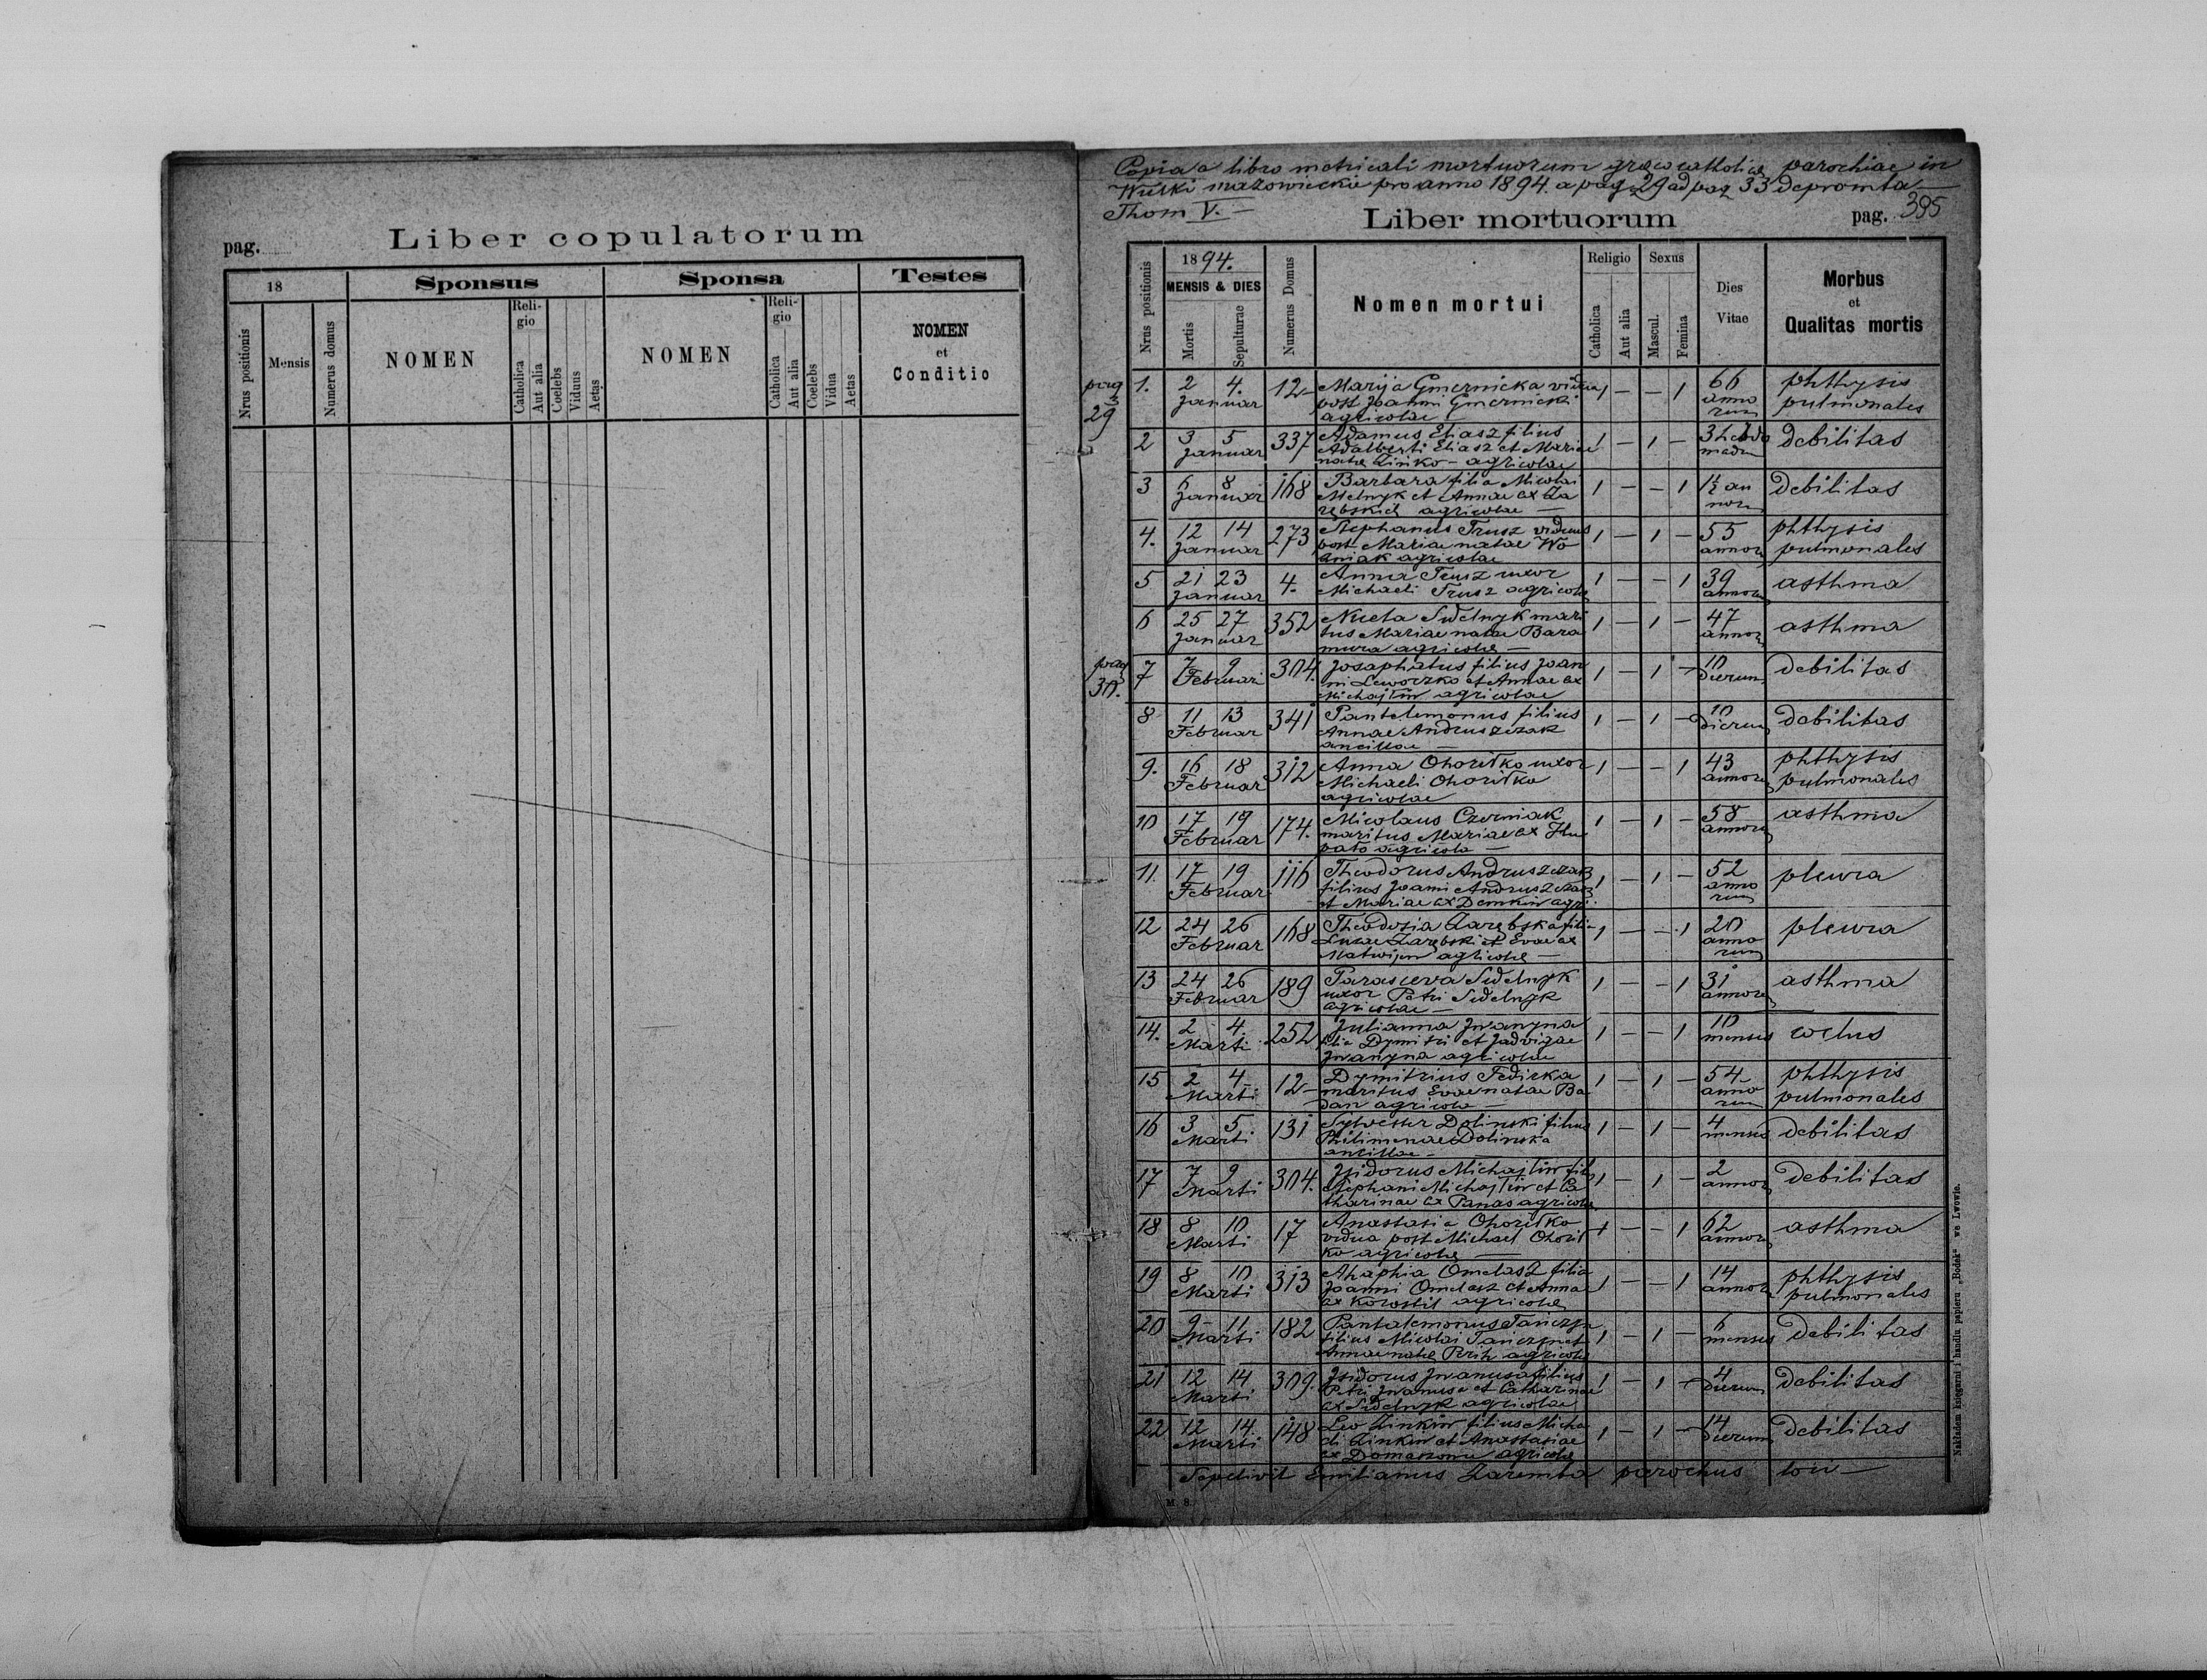 pag.
Liber copulatorum
18
Sponsus
Sponsa
Testes
Nrus positionis
Mensis
Numerus domus
NOMEN
Religio
Catholica
Aut alia
Coelebs
Viduus
Aetas
NOMEN
Religio
Catholica
Aut alia
Coelebs
Vidua
Aetas
NOMEN
et
Conditio
Copia a libro metricali mortuorum graeco catholicae parochiae in
Wulki mazowieckie pro anno 1894 a pag 29 ad pag 33 depromta
Thom V.
Liber mortuorum
pag. 395
Nrus positionis
1894.
MENSIS & DIES
Mortis
Sepulturae
Numerus Domus
Nomen mortui
Religio
Catholica
Aut alia
Sexus
Mascul.
Femina
Dies
Vitae
Morbus
et
Qualitas mortis
pag
29
1. 2 4. 12 Marija Gmernicka vidua 1 — — 1 66 phthysis
Januar post Joanni Gmernicki anno pulmonales
agricolae rum
2 3 5 337 Adamus Eliasz filius 1 — 1 — 3 hebdo debilitas
Januar Adalberti Eliasz et Mariae madum
natae Zinko - agricolae
3 6 8 168 Barbara filia Nicolai 1 — — 1 1½ an debilitas
Januar Melnyk et Annae ex Za nor
rębskich agricolae —
4. 12 14 273 Stephanus Trusz viduus 1 — 1 — 55 phthysis
Januar post Mariae natae Wo annor pulmonales
źniak agricolae
5 21 23 4. Anna Trusz uxor 1 — — 1 39 asthma
Januar Michaeli Trusz agricolae annor
6 25 27 352 Niceta Sydelnyk mari 1 — 1 — 47 asthma
Januar tus Mariae natae Bara annor
mura agricolae —
pag
30.
7 7 9 304. Josaphatus filius Joan 1 — 1 — 10 debilitas
Februar ni Leworzko et Annae ex dierum
Michajłiw agricolae
8 11 13 341 Pantelemonus filius 1 — 1 — 10 debilitas
Februar Annae Andruszczak dierum
ancillae —
9. 16 18 312 Anna Ohoriłko uxor 1 — — 1 43 phthysis
Februar Michaeli Ohoriłko annor pulmonales
agricolae
10 17 19 174. Nicolaus Czerniak 1 — 1 — 58 asthma
Februar maritus Mariae ex annor
agricola —
11. 17 19 116 Theodorus Andruszczak 1 — 1 — 52 pleura
Februar filius Joanni Andruszczak anno
et Mariae ex Demkiw agri. rum
12 24 26 168 Theodosia Zarębska filia 1 — — 1 20 pleura
Februar Lucae Zarębski et Evae ex anno
Matwijem agricolae — rum
13 24 26 189 Parasceva Sydelnyk 1 — — 1 31 asthma
Februar uxor Petri Sydelnyk annor
agricolae —
14. 2 4. 252 Julianna Jwanyna 1 — — 1 10
Marti filia Dymitri et Jadvigae mensis
Jwanyna agricolae
15 2 4 12 Dymitrius Fedicka 1 — 1 — 54 phthysis
Marti maritus Evae natae Ba anno pulmonales
dan agricola — rum
16 3 5 131 Sylvester Dolinski filius 1 — 1 — 4 debilitas
Marti Philimenae Dolinska mensis
ancillae —
17 7 9 304. Jsidorus Michajłiw fils 1 — 1 — 2 debilitas
Marti Stephani Michajłiw et Ca annor
tharinae ex Panas agricolae
18 8 10 17 Anastasia Ohoriłko 1 — — 1 62 asthma
Marti vidua post Michael Ohorił annor
ko agricolae —
19 8 10 313 Ahaphia Omelasz filia 1 — — 1 14 phthysis
Marti Joanni Omelasz et Annae annor pulmonales
ex Korostil agricolae
20 9 11 182 Pantalemonus Tanczyn 1 — 1 — 6 debilitas
Marti filius Nicolai Tanczyn et mensis
Annae natae agricolae
21 12 14 309. Jsidorus Jwanusa filius 1 — 1 — 4 debilitas
Marti Petri Jwanusa et Catharinae dierum
ex Sydelnyk agricolae
22 12 14. 148 Leo Zinkiw filius Micha 1 — 1 — 14 debilitas
Marti eli Zinkiw et Anastasiae dierum
ex agricolae
Sepelivit Emilianus Zaremba parochus loci —
M. 8.
Nakładem księgarni i handlu papieru „Bodek" we Lwowie.